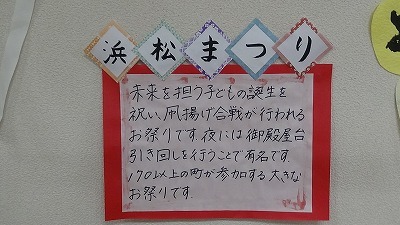 浜松まつり
未来を担う子どもの誕生を
祝い、凧揚げ合戦が行われる
お祭りです。夜には御殿屋台
引き回しを行うことで有名です。
170以上の町が参加する大きな
お祭りです。